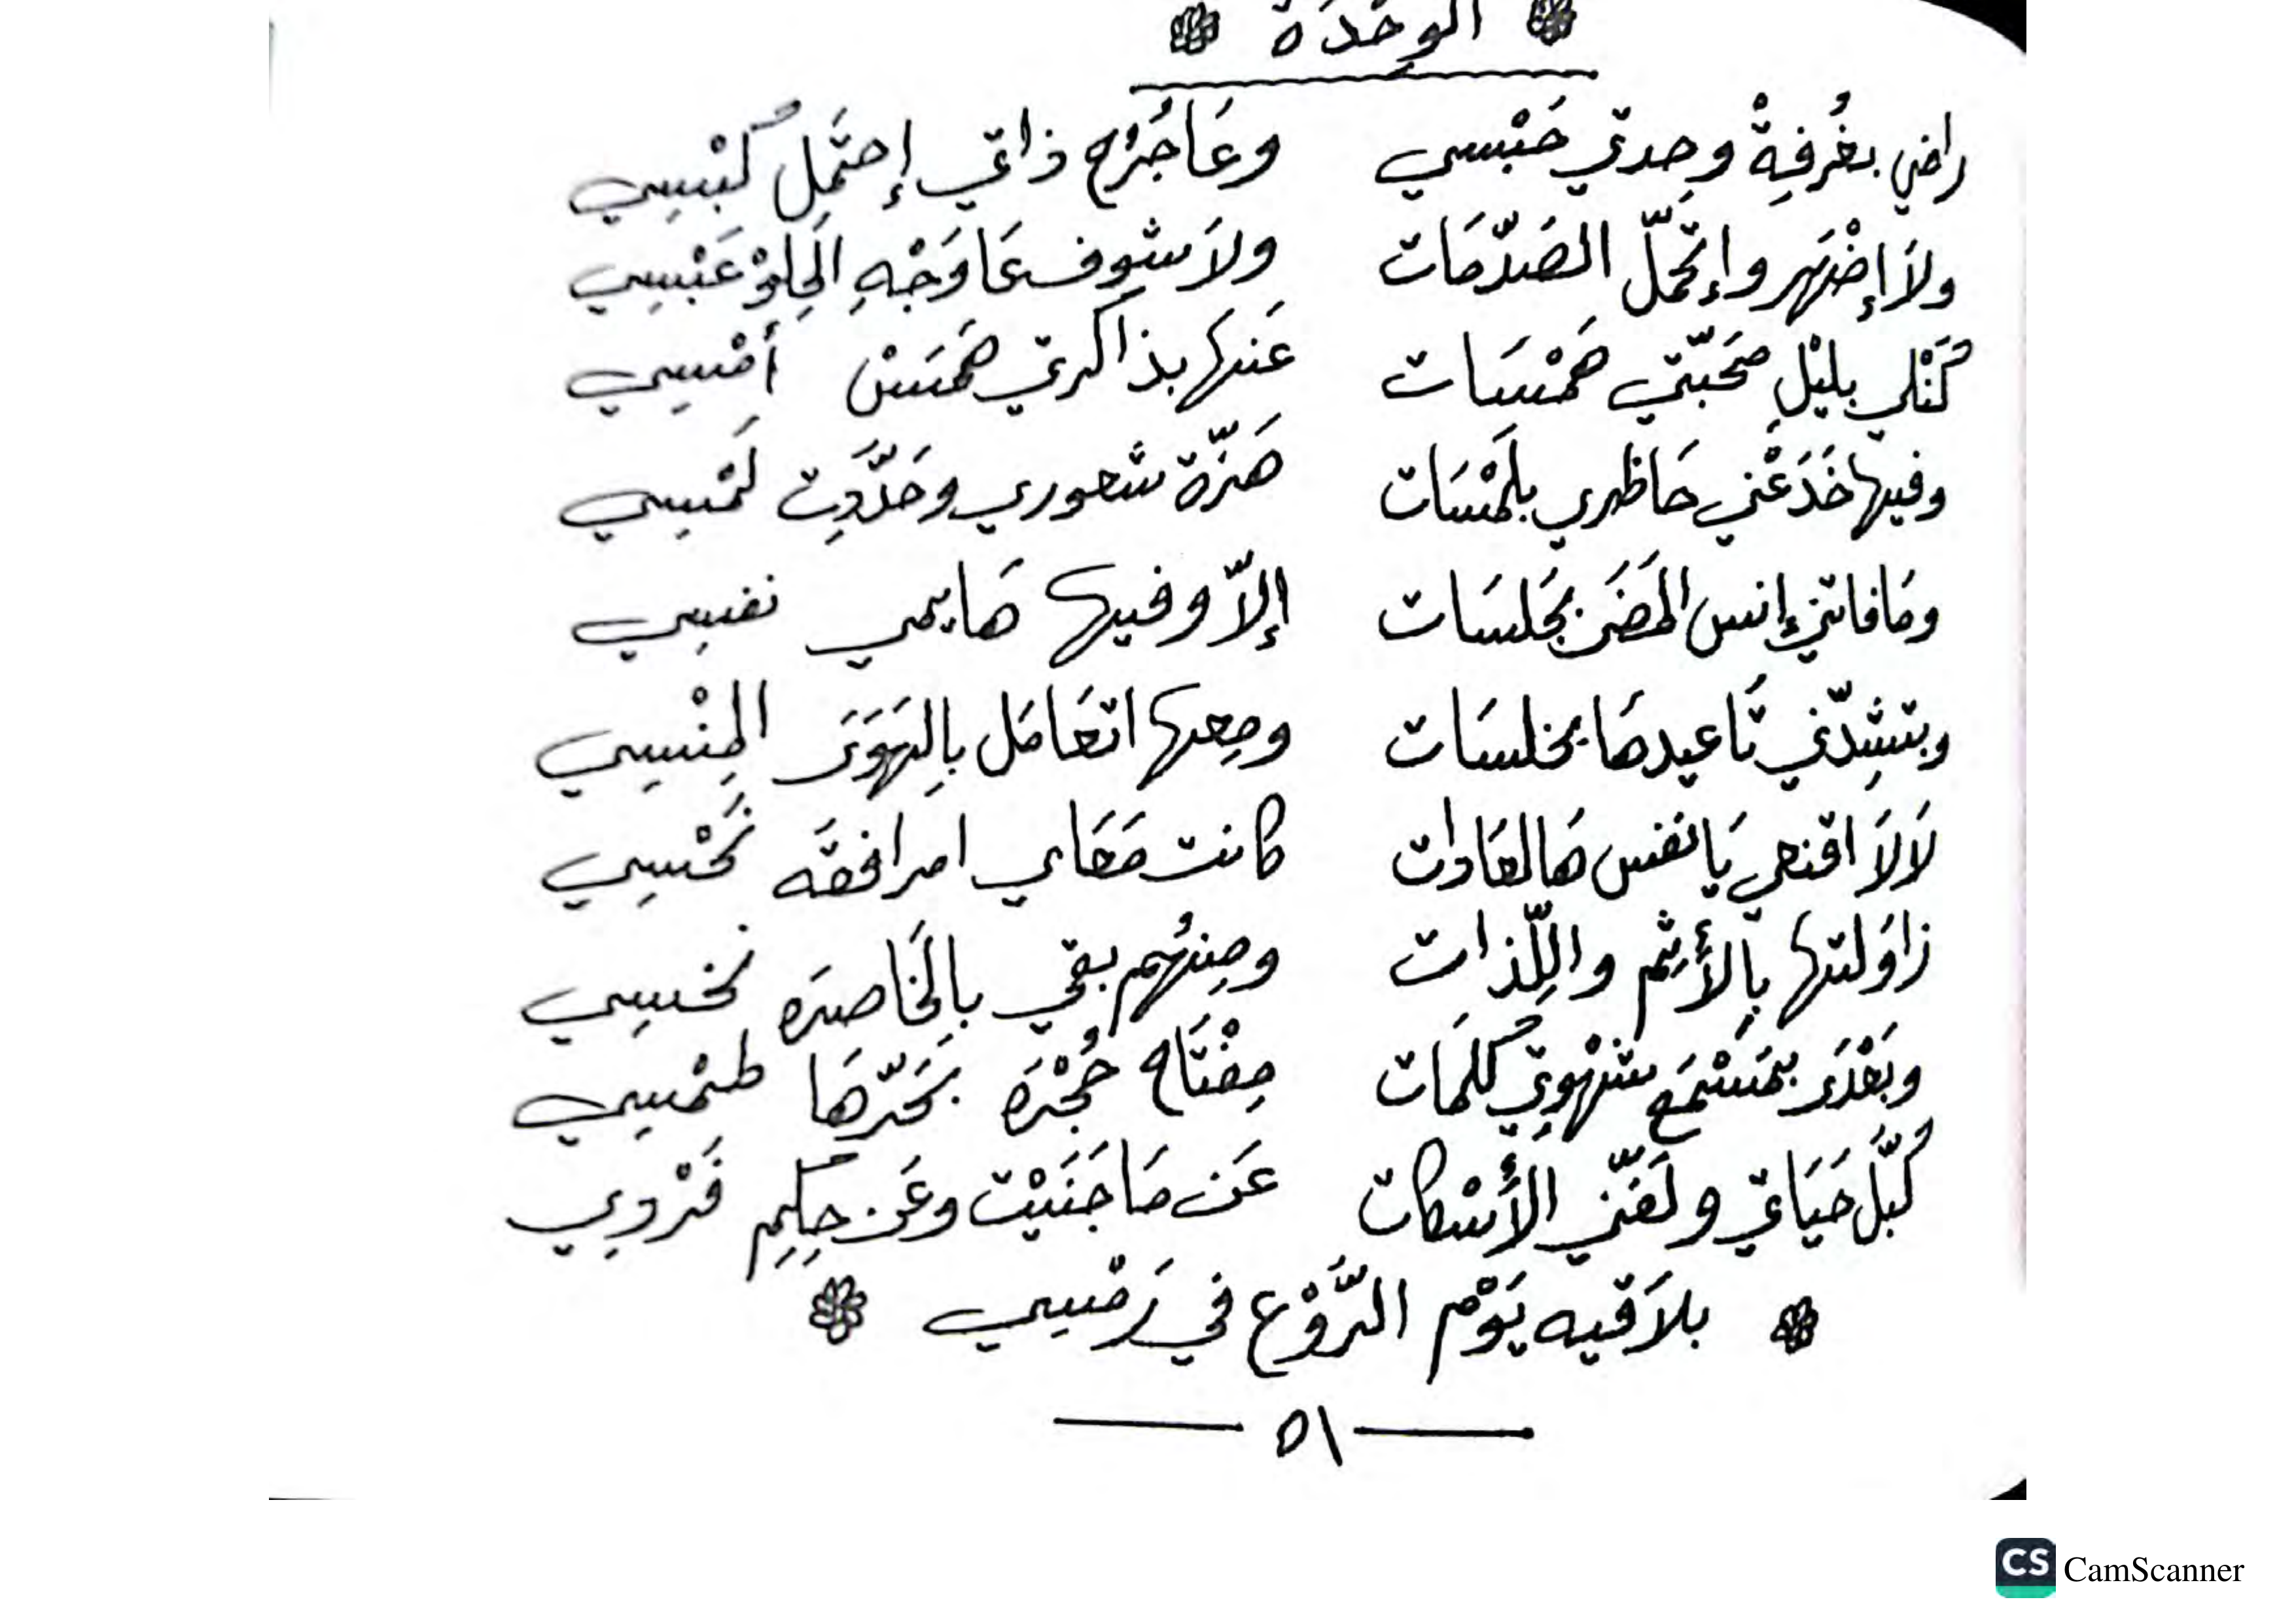 الوحْدَة
راضي بغُرفِةْ وحِدتي حَبْسي وعَا جُرُح ذاتي إحتَمِل كُبْسِي
ولاَ إضْهَر وإتحَمّل الصَدّمَات ولاَ شوف عَا وَجْهِ الحِلِوْ عَبْسِي
كَنْلي بليْلِ مَحَبّتي هَمْسَات عَنها بذاكرتي هَمَسْ أمْسِي
وفيها خَدَعْني حَاظري بلَمْسَات هَزّة شعوري وحَدَّدِت لَمْسِي
ومَا فاتني إنس المَضَى بجَلسَات إلاّ وفيها هَايمي نفسِي
وبتشِدّني تَا عيدهَا بخلسَات ومِعها اتعَامَل بِالهَوَى المِنْسِي
لاَلاَ اقنعي يَا نفس هَالعَادات كانت مَعَاي امرافقَه نَحْسِي
زاوَلتها بِالأَثِم واللِّذات ومِنهُم بقي بِالخَاصرَه نخسِي
وبَعْدَى بمَسْمَع شهْوتي كلمَات مِفْتَاح حُجْرَه بَحَرّهَا طمْسِي
كُبَّل حَيَاتي ولَفَّني الأسْكات عَن مَا جَنَيْت وعَن حِكِم فَرْدِي
بلاَقيه يَوْم الرَّوْع في رَمْسِي
٥١
CS CamScanner